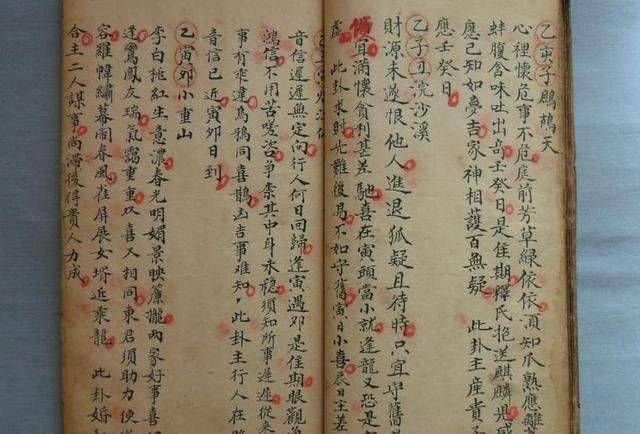 乙寅子鷓鴣天
心裡懷危事不危庭前芳草綠依依須知瓜熟應離
蚌腹含味吐出奇壬癸日是佳期釋氏抱送麒麟兒感
應已知如夢吉家神相護百無疑 此卦主產貴子
應壬癸日
乙子丑浣沙溪
財源未遂恨他人進退狐疑且待時只宜守舊
傾宜消懷貪利甚差馳喜在寅頭當小就逢龍又恐是
虛 此卦求財先難後易不如守舊寅日小喜辰日主差
音信遲遲無定向行人何日回歸逢寅過卯是佳期眼觀
鴻信不用苦嗟咨爭柰其中耳未穩須知所事遲遲從來
事有乖違烏鴉同喜鵲凶吉事難知，此卦主行人在
音信已近寅卯日到
乙寅卯小重山
李白桃紅生意濃春光明媚景映簾櫳兩家好事喜
逢鸞鳳友瑞氣靄重重双喜又相同東君須助力便
容羅幃繡幕鬧春風雀屏展女壻近乘龍 此卦婚
合主二人謀事尚滯後得貴人力成